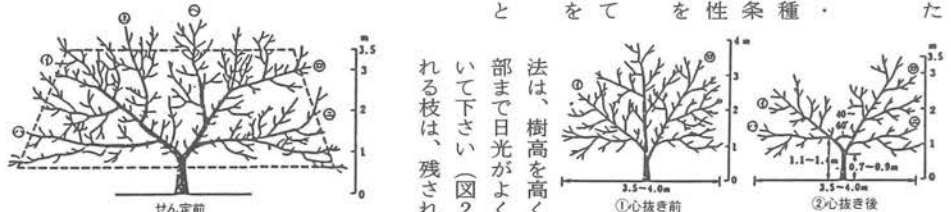 た
・
種
条
件
性
を
て
を
と
法は、樹高を高く
部まで日光がよく
いて下さい（図2
れる枝は、残され
m
3.5
3
2
1
0
㋑
㋺
㋩
㊁
㋭
㋬
せん定前
4m
3
2
1
0
㋑
㋺
3.5～4.0m
①心抜き前
m
3.5
3
2
1
0
㋑
㋺
㋩
㊁
40～
60°
0.7～0.9m
3.5～4.0m
②心抜き後